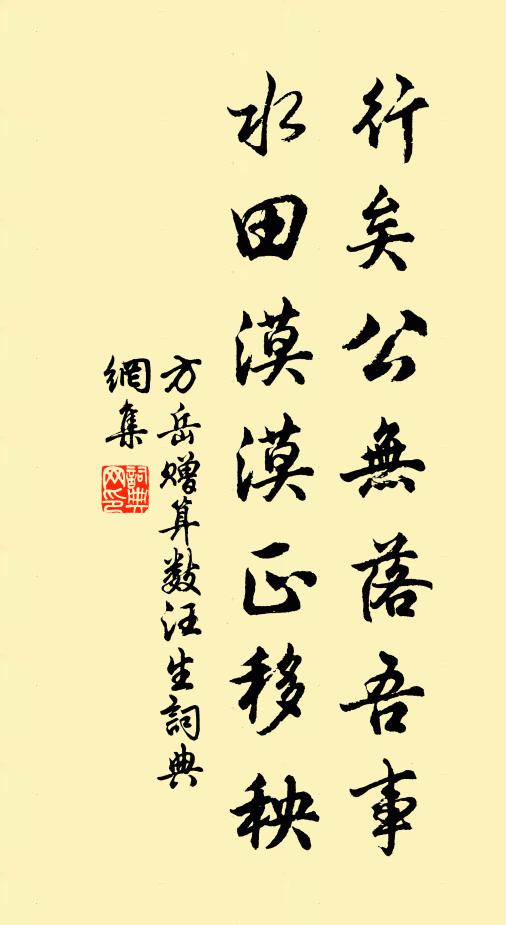 行矣公無落吾事
水田漠漠正移秧
方岳赠算数汪生詞典
網集
詞典